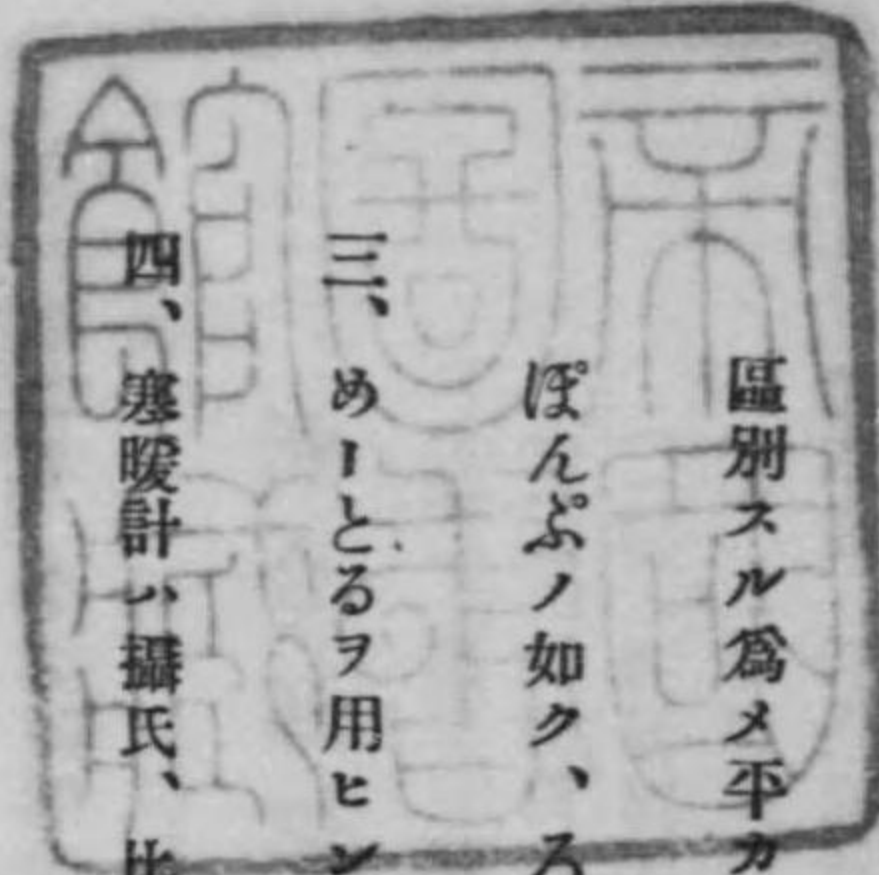 區別スル爲メ平カ
ぽんぷノ如ク、ろ
三、めーとるヲ用ヒン
四、寒暖計ハ攝氏、比
帝國圖書館藏